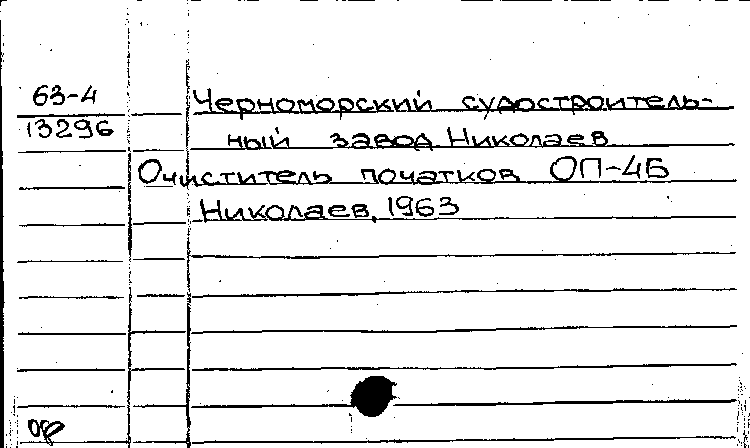 63-4
13296
Черноморский судостроитель-
ный завод Николаев
Очиститель початков ОП-4Б
Николаев, 1963